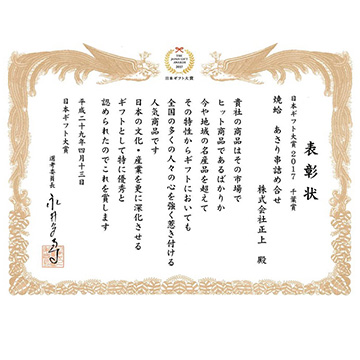 THE JAPAN GIFT AWARD 2017
日本ギフト大賞
表彰状
日本ギフト大賞2017 千葉賞
焼蛤 あさり串詰め合せ
株式会社正上 殿
貴社の商品はその市場で
ヒット商品であるばかりか
今や地域の名産品を超えて
その特性からギフトにおいても
全国の多くの人々の心を強く惹き付ける
人気商品です
日本の文化・産業を更に深化させる
ギフトとして特に優秀と
認められたのでこれを賞します
平成二十九年四月十三日
日本ギフト大賞
選考委員長